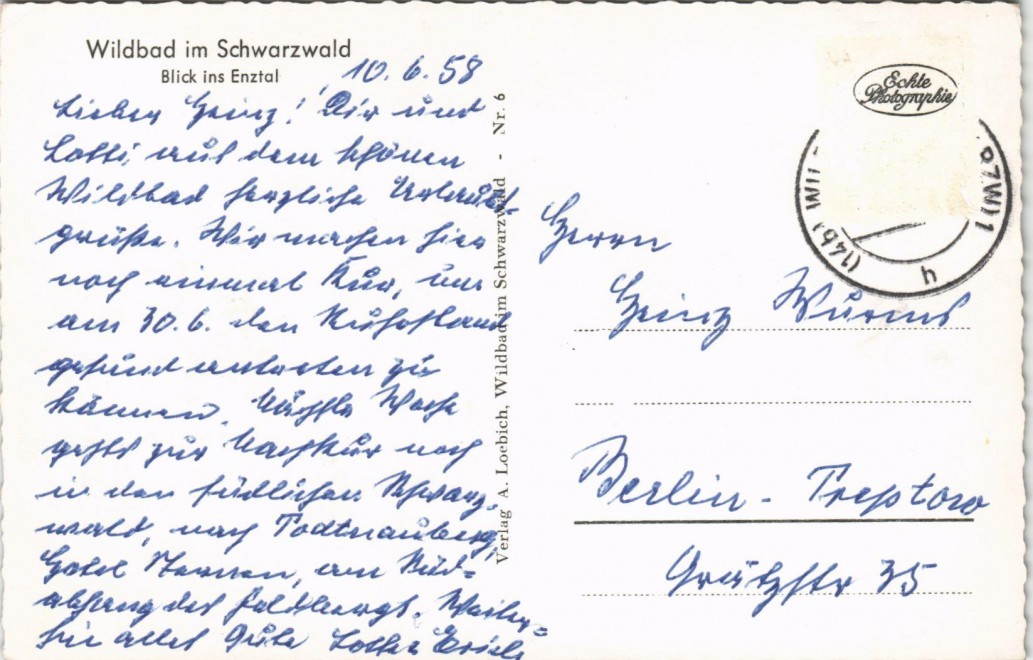 Wildbad im Schwarzwald
Blick ins Enztal
10.6.58
Lieber Heinz! Dir und
Lotti, aus dem schönen
Wildbad herzliche Urlaubs
grüße. Wir machen hier
noch einmal Kur, um
am 30.6. den Ruhestand
gesund antreten zu
können. Nächste Woche
gehts zur Nachkur noch
in den südlichen Schwarz-
wald, nach Todtnauberg,
Hotel Sternen, am Süd=
abhang des Feldbergs. Weiter=
hin alles Gute Lotte u Erich
Verlag A. Loebich, Wildbad im Schwarzwald - Nr. 6
Echte
Photographie
(14b) WIL
Herrn
Heinz
Berlin - Treptow
Grätzstr 35